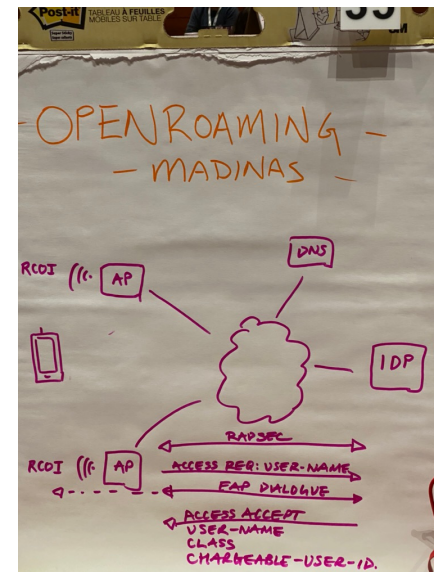 Post-it
TABLEAU À FEUILLES
MOBILES SUR TABLE
- OPENROAMING -
- MADINAS -
DNS
RCOI
AP
IDP
RADSEC
RCOI
AP
ACCESS REQ: USER-NAME
EAP DIALOGUE
ACCESS ACCEPT
USER-NAME
CLASS
CHARGEABLE-USER-ID.